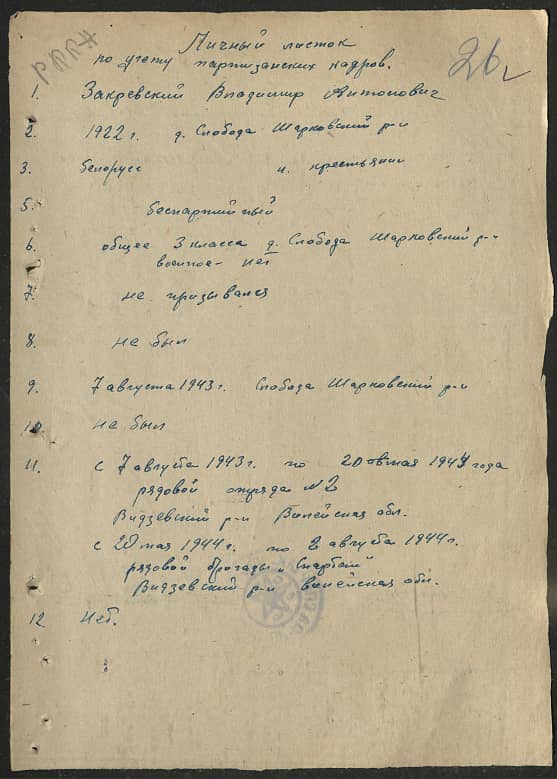 РККА
26
Личный листок
по учету партизанских кадров.
1. Закревский Владимир Антонович
2. 1922 г. д. Слобода Шарковский р-н
3. белорусс 4. крестьянин
5. беспартийный
6. общее 3 класса д. Слобода Шарковский р-н
военное - нет
7. не призывался
8. не был
9. 7 августа 1943 г. Слобода Шарковский р-н
10. не был
11. с 7 августа 1943 г. по 20 мая 1944 года
рядовой отряда № 2
Видзевский р-н Вилейская обл.
с 20 мая 1944 г. по 2 августа 1944 г.
рядовой бригады Спартак
Видзевский р-н вилейская обл.
12. Нет.